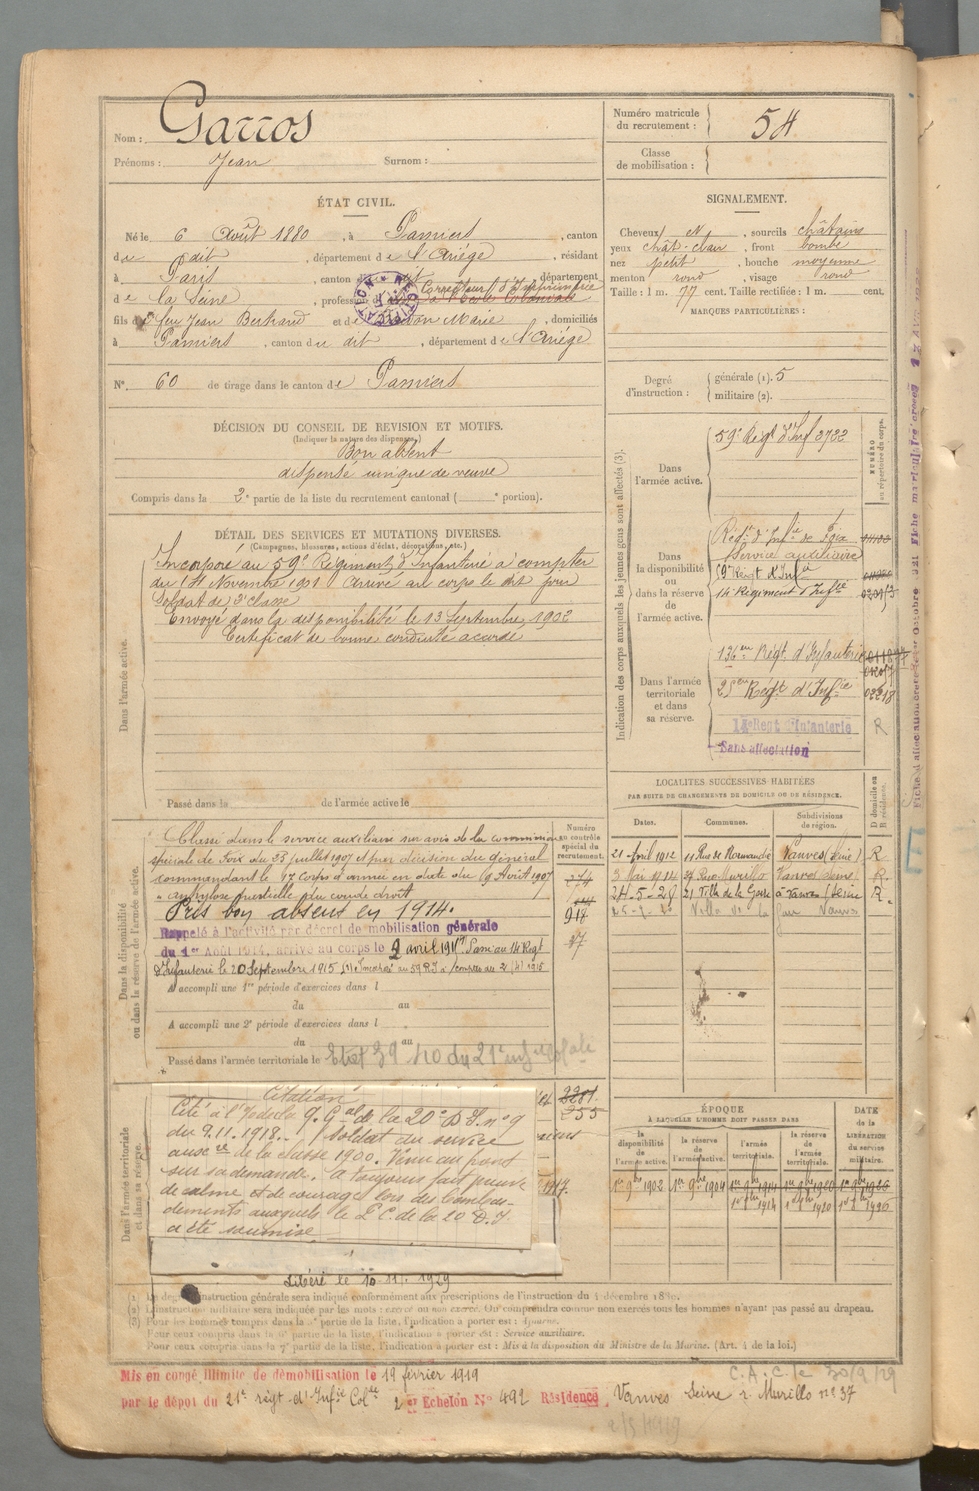 Nom : Garros
Prénoms : Jean Surnom :
Numéro matricule du recrutement : 54
Classe de mobilisation :
ÉTAT CIVIL.
Né le 6 Août 1880, à Pamiers, canton
de dit, département de l'Ariége, résidant
à Paris, canton de dit, département
de la Seine, profession d Correcteur d'Imprimerie
fils de feu Jean Bertrand et de Marie, domiciliés
à Pamiers, canton du dit, département de l'Ariége
N° 60 de tirage dans le canton de Pamiers
SIGNALEMENT.
Cheveux et, sourcils châtains
yeux chât-clair, front bombé
nez petit, bouche moyenne
menton rond, visage rond
Taille : 1 m. 77 cent. Taille rectifiée : 1 m. cent.
MARQUES PARTICULIÈRES :
Degré d'instruction : générale (1). 5
militaire (2).
DÉCISION DU CONSEIL DE REVISION ET MOTIFS.
(Indiquer la nature des dispenses.)
Bon absent
dispensé unique de veuve
Compris dans la 2e partie de la liste du recrutement cantonal ( e portion).
DÉTAIL DES SERVICES ET MUTATIONS DIVERSES.
(Campagnes, blessures, actions d'éclat, décorations, etc.)
Dans l'armée active.
Incorporé au 59e Régiment d'Infanterie à compter
du 14 Novembre 1901 Arrivé au corps le dit jour
Soldat de 2e classe
Envoyé dans la disponibilité le 13 Septembre 1902
Certificat de bonne conduite accordé
Passé dans la de l'armée active le
Indication des corps auxquels les jeunes gens sont affectés (3).
NUMÉRO au répertoire du corps.
Dans l'armée active.
59e Régt d'Inf 3722
Dans la disponibilité ou dans la réserve de l'armée active.
Régt d'Infie de Foix
Service auxiliaire
59e Regt d'Infie
14e Régiment d'Infie
Dans l'armée territoriale et dans sa réserve.
136eme Régt d'Infanterie
25em Regt d'Infie 02218
14e Regt d'Infanterie R
Sans affectation
LOCALITES SUCCESSIVES HABITÉES
PAR SUITE DE CHANGEMENTS DE DOMICILE OU DE RÉSIDENCE.
Dates. Communes. Subdivisions de région. D domicile ou R résidence.
21 Avril 1912 11 Rue de Normandie Vanves (Seine) R
3 Mai 1914 37 Rue Murillo Vanves Seine R.
24-5-29 21 Villa de la Gare à Vanves (Seine R.
Villa de la Gare Vanves
Dans la disponibilité ou dans la réserve de l'armée active.
Numéro au contrôle spécial du recrutement.
Classé dans le service auxiliaire sur avis de la commission
spéciale de Foix du 23 juillet 1907 et par décision du général
commandant le 17 Corps d'armée en date du 9 Août 1907
" ankylose partielle du coude droit
Pris bon absent en 1914.
Rappelé à l'activité par décret de mobilisation générale
du 1er Août 1914, arrivé au corps le 2 avril 1915 Passé au 14 Regt
d'Infanterie le 20 Septembre 1915
274
918
A accompli une 1re période d'exercices dans l
du au
A accompli une 2e période d'exercices dans l
du au
Passé dans l'armée territoriale le
Dans l'armée territoriale et dans sa réserve.
2281
255
Citation
Cité à l'ordre du Q.Gal de la 20e D.I. no 9
du 9.11.1918. Soldat du service
auxre de la classe 1900. Venu au front
sur sa demande. A toujours fait preuve
de calme et de courage lors des bombar-
dements auxquels le Q.G. de la 20 D.I
a été soumise
1917.
Libéré le 10.11. 1929
ÉPOQUE
À LAQUELLE L'HOMME DOIT PASSER DANS
DATE de la LIBÉRATION du service militaire.
la disponibilité de l'armée active. la réserve de l'armée active. l'armée territoriale. la réserve de l'armée territoriale.
1er 9bre 1902 1er 9bre 1904 1er 9bre 1914 1er 9bre 1920 1er 9bre 1926
(1) Le degré d'instruction générale sera indiqué conformément aux prescriptions de l'instruction du 4 décembre 1889.
(2) L'instruction militaire sera indiquée par les mots : exercé ou non exercé. On comprendra comme non exercés tous les hommes n'ayant pas passé au drapeau.
(3) Pour les hommes compris dans la partie de la liste, l'indication à porter est : Ajourné.
Pour ceux compris dans la 6e partie de la liste, l'indication à porter est : Service auxiliaire.
Pour ceux compris dans la 7e partie de la liste, l'indication à porter est : Mis à la disposition du Ministre de la Marine. (Art. 4 de la loi.)
Mis en congé illimité de démobilisation le 19 février 1919
C.A.C. le 30/9/29
par le dépôt du 21e régt d'Infie Colle 2er Echelon N° 492 Résidence Vanves Seine r. Murillo n° 37